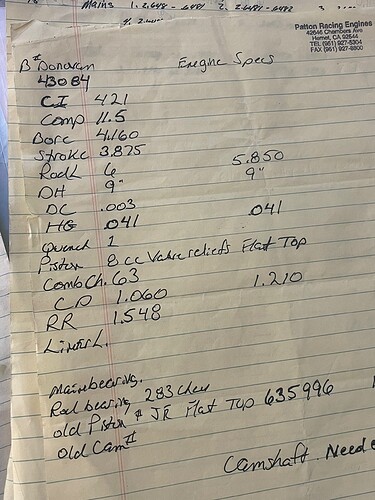 Mains 1. 2.648 - 6481 2. 2.6481 - 6482 3.
Patton Racing Engines
42646 Chambers Ave
Hemet, CA 92544
TEL (951) 927-5304
FAX (951) 927-8800
B# Donovan Enegine Specs
43084
CI 421
Comp 11.5
Bore 4.160
Stroke 3.875
RodL 6 5.850
DH 9" 9"
DC .003
HG .041 .041
Quench 1
Piston 8 cc Valve reliefs Flat Top
Comb Ch. 63
CD 1.060 1.210
RR 1.548
Liner L.
Main bearing.
Rod bearing 283 Chev
old Piston # JR Flat Top 635996
old Cam#
Camshaft Neede